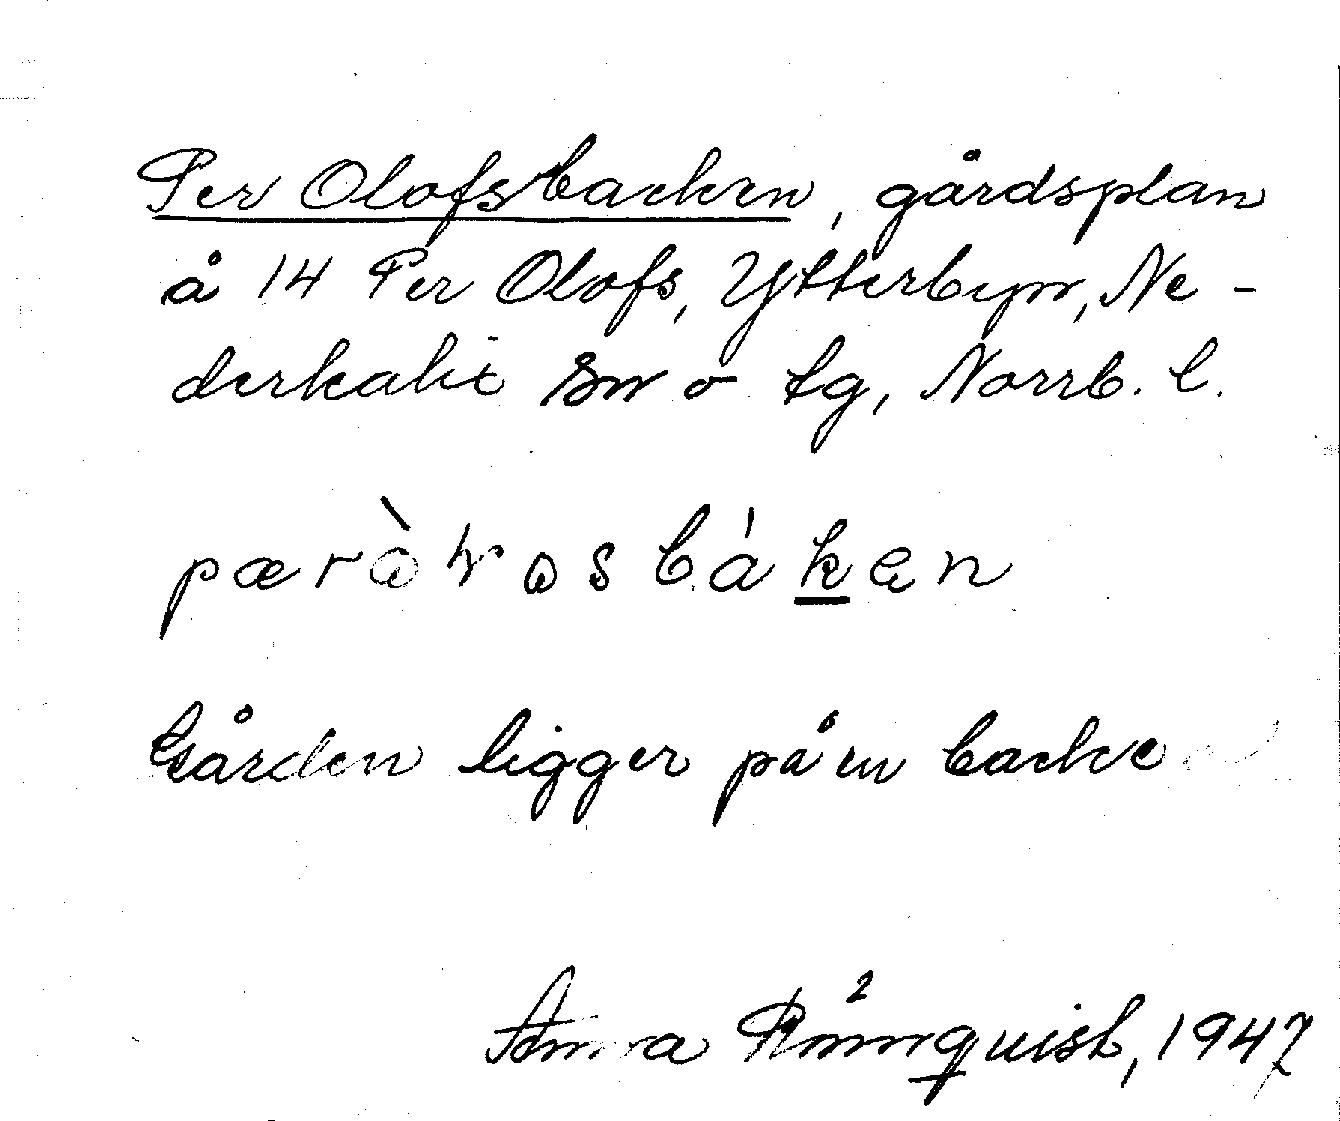 Per Olofsbacken, gårdsplan
å 14 Per Olofs, Ytterbyn, Ne-
derkalix sn o tg, Norrb. l.
pæràvasbáken
Gården ligger på en backe
Anna Rönnquist, 1947